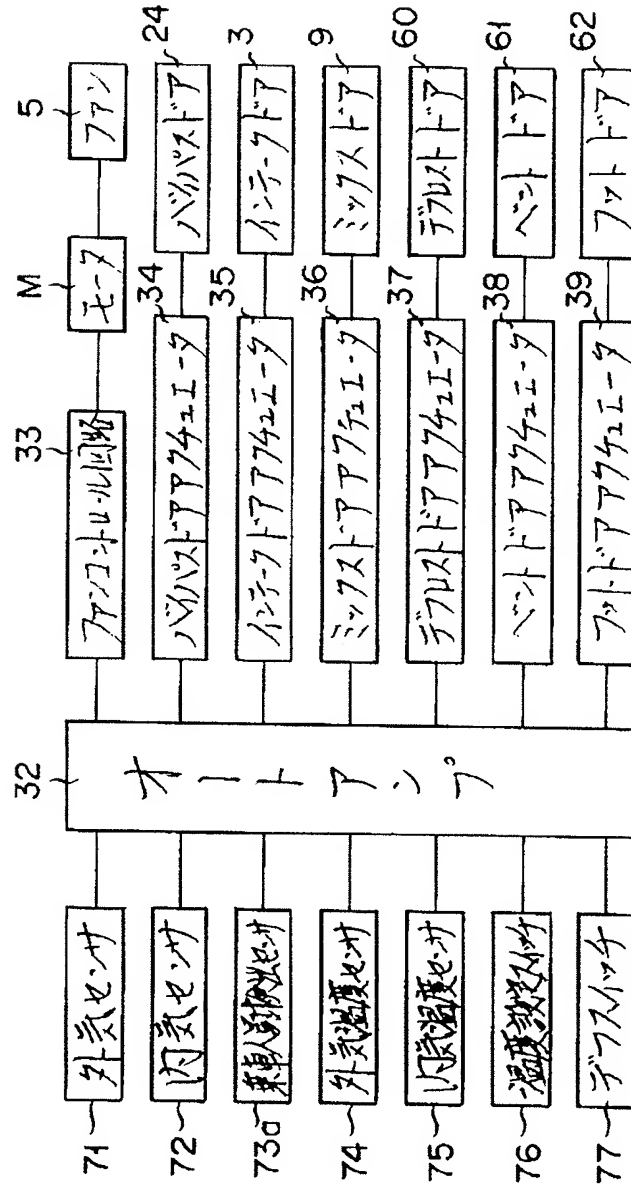 71 外気センサ
72 内気センサ
73a 乗車人員検出センサ
74 外気温度センサ
75 内気温度センサ
76 温度設定スイッチ
77 デフスイッチ
32 オートアンプ
33 ファンコントロール回路
M モータ
5 ファン
34 バイパスドアアクチュエータ
24 バイパスドア
35 インテークドアアクチュエータ
3 インテークドア
36 ミックスドアアクチュエータ
9 ミックスドア
37 デフロストドアアクチュエータ
60 デフロストドア
38 ベントドアアクチュエータ
61 ベントドア
39 フットドアアクチュエータ
62 フットドア